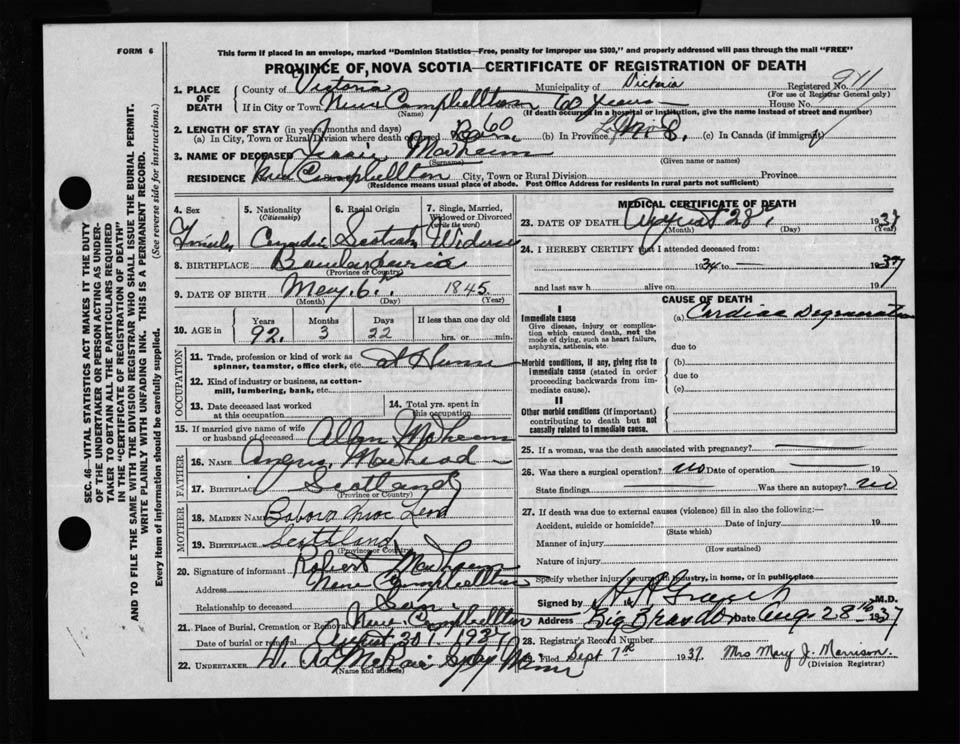 FORM 6
This form if placed in an envelope, marked "Dominion Statistics—Free, penalty for improper use $300," and properly addressed will pass through the mail "FREE"
PROVINCE OF NOVA SCOTIA—CERTIFICATE OF REGISTRATION OF DEATH
SEC. 46—VITAL STATISTICS ACT MAKES IT THE DUTY
OF THE UNDERTAKER OR PERSON ACTING AS UNDER-
TAKER TO OBTAIN ALL THE PARTICULARS REQUIRED
IN THE "CERTIFICATE OF REGISTRATION OF DEATH"
AND TO FILE THE SAME WITH THE DIVISION REGISTRAR WHO SHALL ISSUE THE BURIAL PERMIT.
WRITE PLAINLY WITH UNFADING INK. THIS IS A PERMANENT RECORD.
Every item of information should be carefully supplied. (See reverse side for instructions.)
1. PLACE OF DEATH
County of Victoria Municipality of Victoria Registered No. 911
(For use of Registrar General only)
If in City or Town New Campbellton 60 years House No.
(Name) (If death occurred in a hospital or institution, give the name instead of street and number)
2. LENGTH OF STAY (in years, months and days)
(a) In City, Town or Rural Division where death occurred 60 (b) In Province (c) In Canada (if immigrant)
3. NAME OF DECEASED Jessie
(Surname) (Given name or names)
RESIDENCE New Campbellton City, Town or Rural Division Province
(Residence means usual place of abode. Post Office Address for residents in rural parts not sufficient)
4. Sex
5. Nationality
(Citizenship)
6. Racial Origin
Scotch
7. Single, Married, Widowed or Divorced
(write the word)
Widow
8. BIRTHPLACE
(Province or Country)
9. DATE OF BIRTH May 6 1845
(Month) (Day) (Year)
10. AGE in Years Months Days If less than one day old
92 3 22 hrs. or min.
OCCUPATION
11. Trade, profession or kind of work as spinner, teamster, office clerk, etc. at Home
12. Kind of industry or business, as cotton-mill, lumbering, bank, etc.
13. Date deceased last worked at this occupation
14. Total yrs. spent in this occupation
15. If married give name of wife or husband of deceased Allan
FATHER
16. NAME Angus
17. BIRTHPLACE Scotland
(Province or Country)
MOTHER
18. MAIDEN NAME
19. BIRTHPLACE Scotland
(Province or Country)
20. Signature of informant Robert
Address New Campbellton
Relationship to deceased Son
21. Place of Burial, Cremation or Removal New Campbellton
Date of burial or removal August 30 1937
22. UNDERTAKER
(Name and address)
MEDICAL CERTIFICATE OF DEATH
23. DATE OF DEATH August 28 1937
(Month) (Day) (Year)
24. I HEREBY CERTIFY that I attended deceased from:
1934 to 1937
and last saw h alive on 19
CAUSE OF DEATH
I
Immediate cause (a) Cardiac Degeneration
Give disease, injury or complication which caused death, not the mode of dying, such as heart failure, asphyxia, asthenia, etc.
due to
Morbid conditions, if any, giving rise to immediate cause (stated in order proceeding backwards from immediate cause). (b)
due to
(c)
II
Other morbid conditions (if important) contributing to death but not causally related to immediate cause.
25. If a woman, was the death associated with pregnancy?
26. Was there a surgical operation? no Date of operation 19
State findings Was there an autopsy? no
27. If death was due to external causes (violence) fill in also the following:—
Accident, suicide or homicide? Date of injury 19
(State which)
Manner of injury
(How sustained)
Nature of injury
Specify whether injury occurred in industry, in home, or in public place
Signed by M.D.
Address Big Bras d'Or Date Aug 28th 1937
28. Registrar's Record Number
29. Filed Sept 7th 1937 Mrs Mary J. Morrison
(Division Registrar)